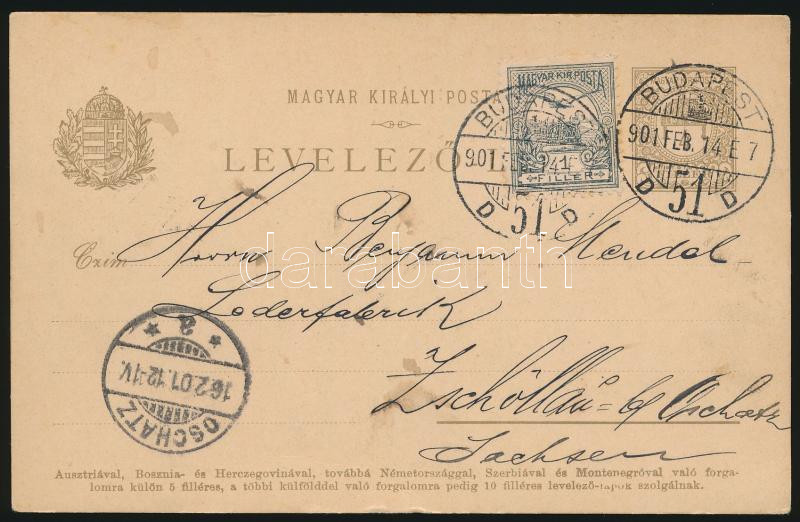 MAGYAR KIRÁLYI POSTA
LEVELEZŐ
MAGYAR KIR. POSTA
1
FILLER
BUDAPEST
901 FEB. 14. E 7
D 51 D
BUDAPEST
901
D 51 D
Czim
Herrn Benjamin Mendel
Lederfabrik
Zschöllau b/ Oschatz
Sachsen
OSCHATZ
16.2.01.12-1V.
* a *
darabanth
Ausztriával, Bosznia- és Herczegovinával, továbbá Németországgal, Szerbiával és Montenegróval való forga-
lomra külön 5 filléres, a többi külfölddel való forgalomra pedig 10 filléres levelező-lapok szolgálnak.